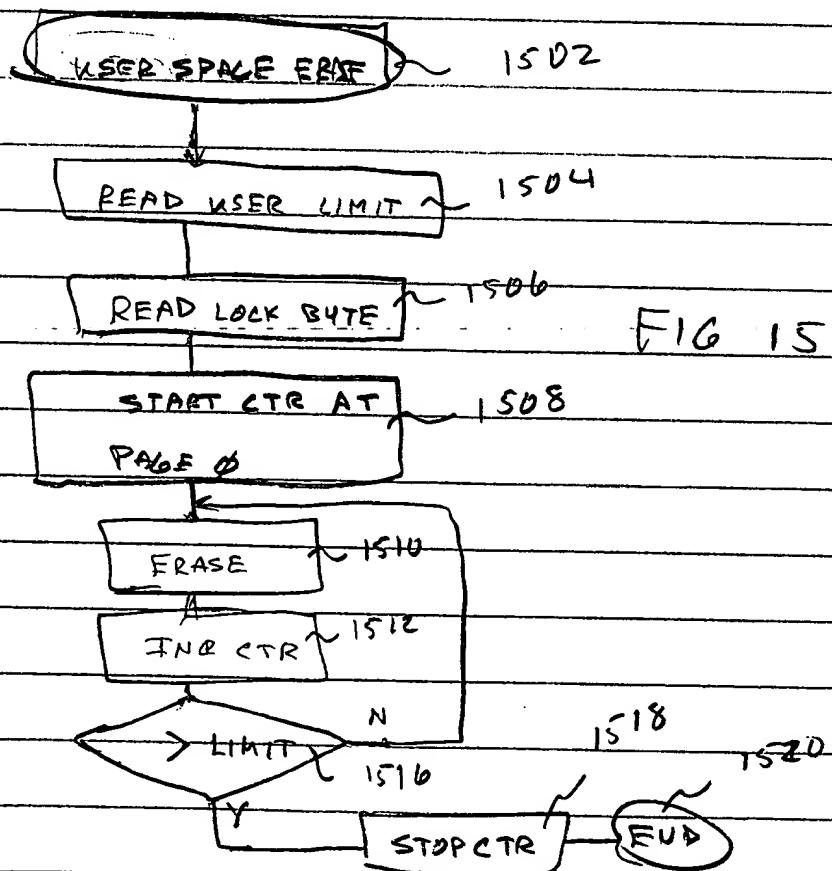 USER SPACE ERASE 1502
READ USER LIMIT 1504
READ LOCK BYTE 1506
FIG 15
START CTR AT 1508
PAGE Ø
ERASE 1510
INC CTR 1512
N
> LIMIT 1516
1518
1520
Y
STOP CTR
END